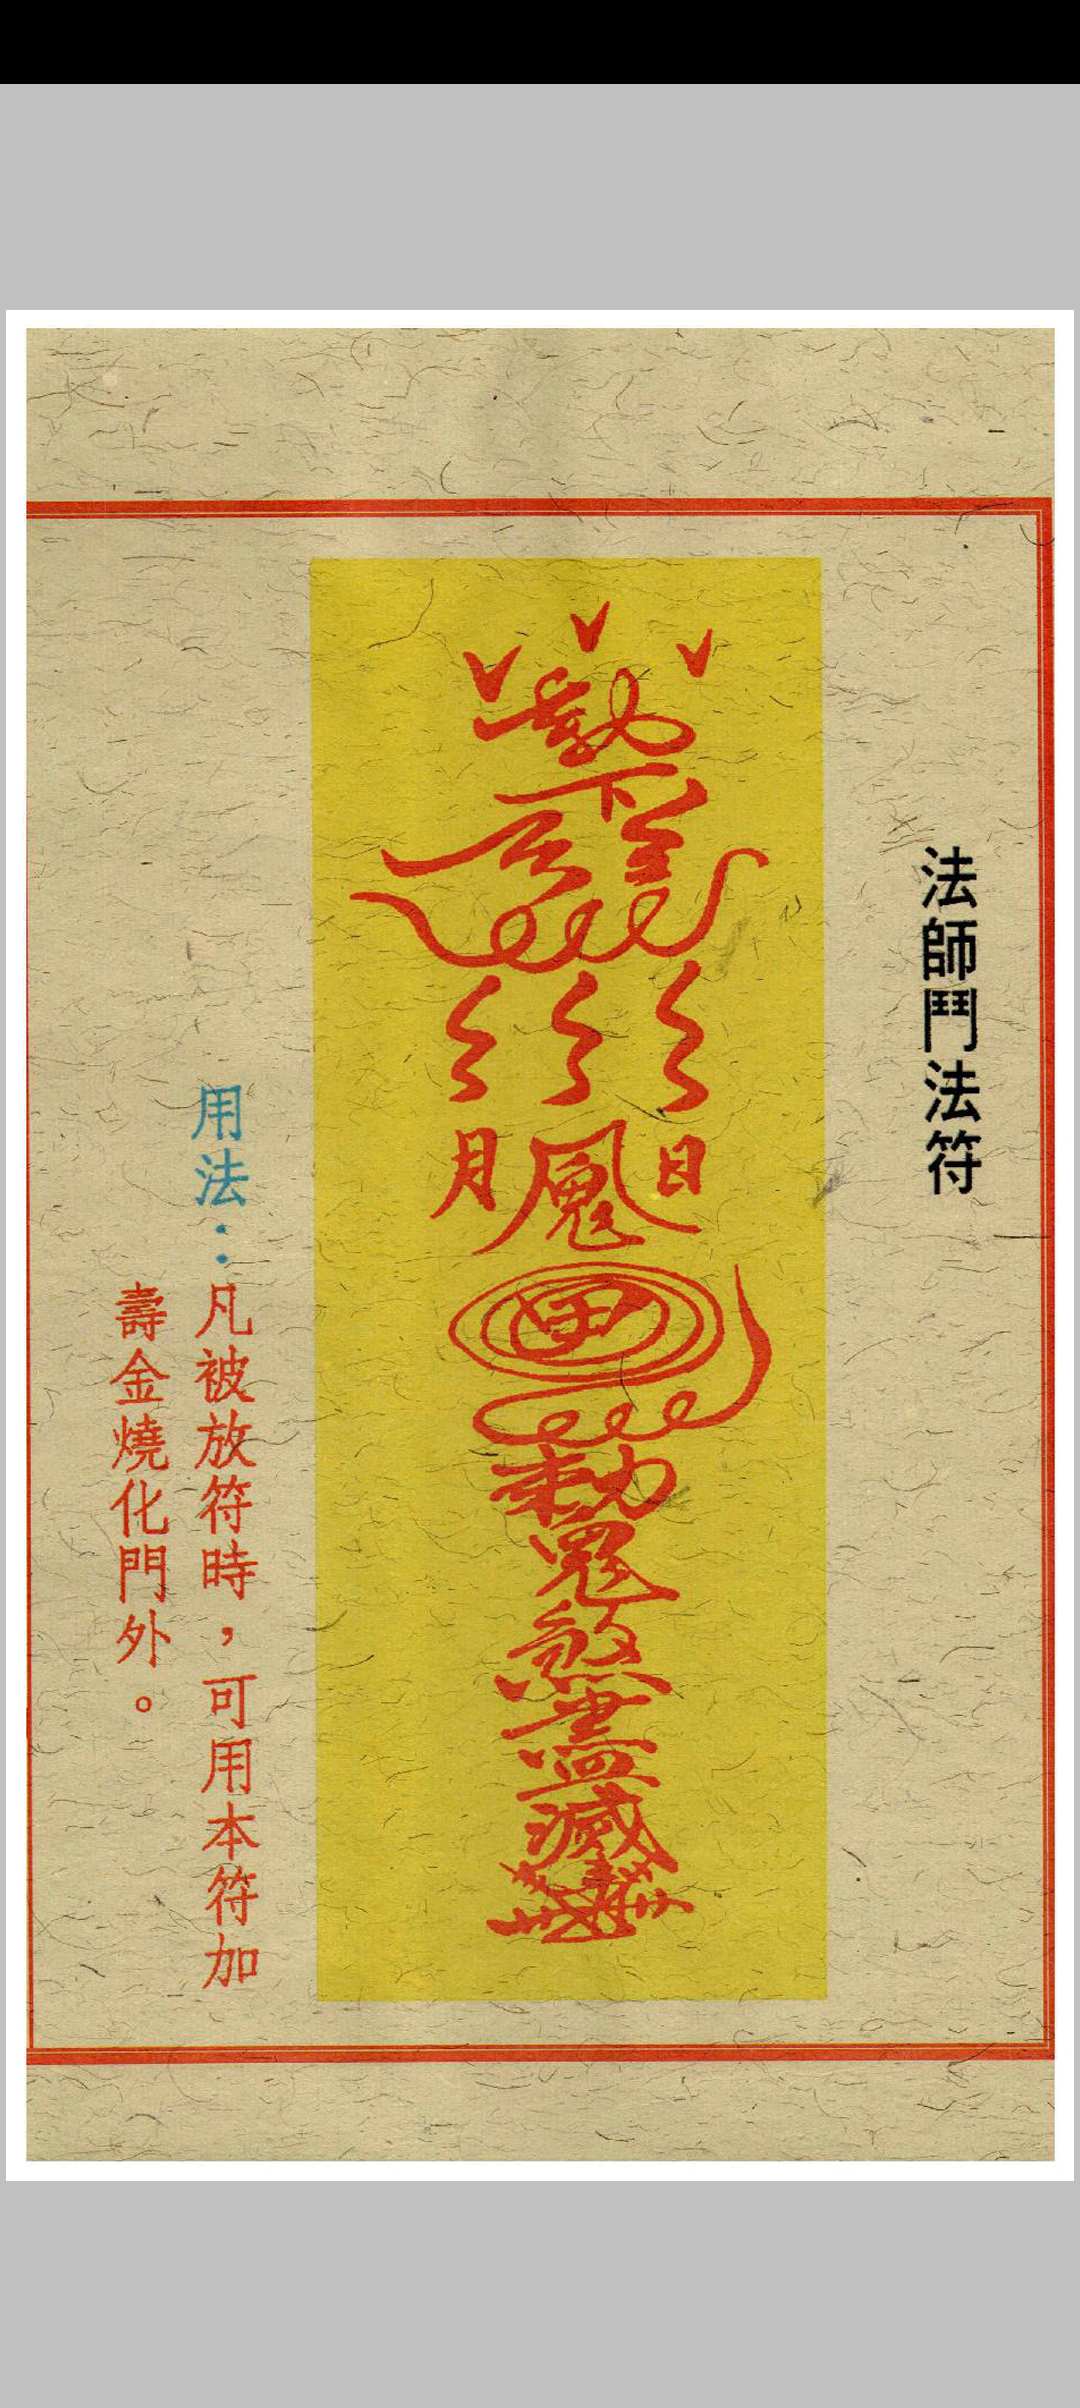 法師鬥法符
勅下
日
月
勅
煞盡滅
用法：凡被放符時，可用本符加
壽金燒化門外。